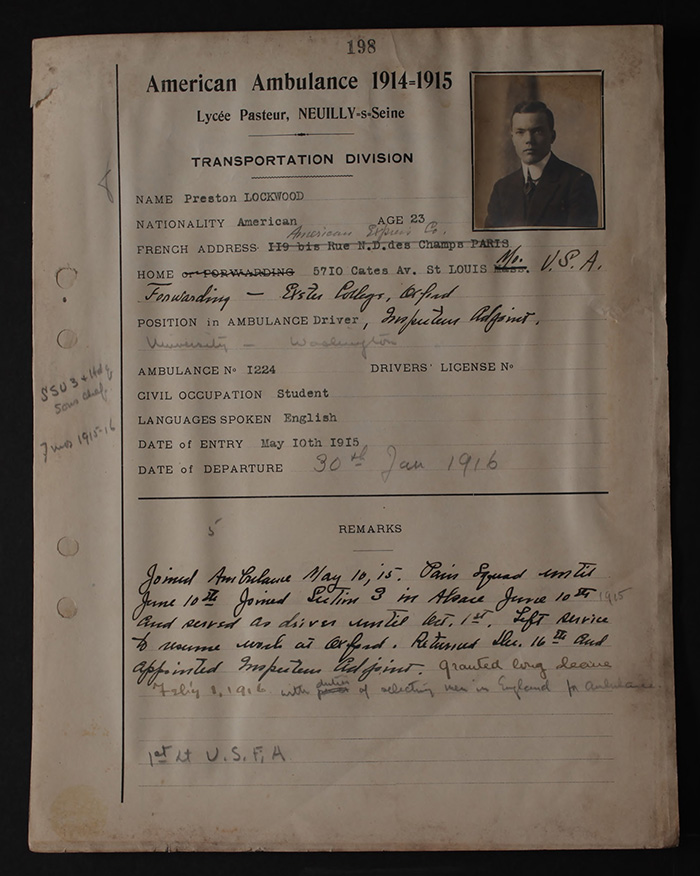 198
American Ambulance 1914=1915
Lycée Pasteur, NEUILLY-s-Seine
TRANSPORTATION DIVISION
8
NAME Preston LOCKWOOD
NATIONALITY American AGE 23
American Express Co.
FRENCH ADDRESS II9 bis Rue N.D.des Champs PARIS
HOME or FORWARDING 57IO Cates Av. St LOUIS Mass. Mo. U.S.A.
Forwarding — Exeter College, Oxford
POSITION in AMBULANCE Driver, Inspecteur Adjoint.
University — Washington
AMBULANCE No I224 DRIVERS' LICENSE No
CIVIL OCCUPATION Student
SSU 3 + Hdq
Sous chef.
LANGUAGES SPOKEN English
7 mos 1915-16
DATE of ENTRY May IOth I9I5
DATE of DEPARTURE 30th Jan 1916
5
REMARKS
Joined Ambulance May 10, 15. Paris Squad until
June 10th Joined Section 3 in Alsace June 10th 1915
and served as driver until Oct. 1st. Left service
to resume work at Oxford. Returned Dec. 16th and
appointed Inspecteur Adjoint. granted long leave
1, 1916 with duties of selecting men in England for Ambulance.
1st Lt U.S.F.A